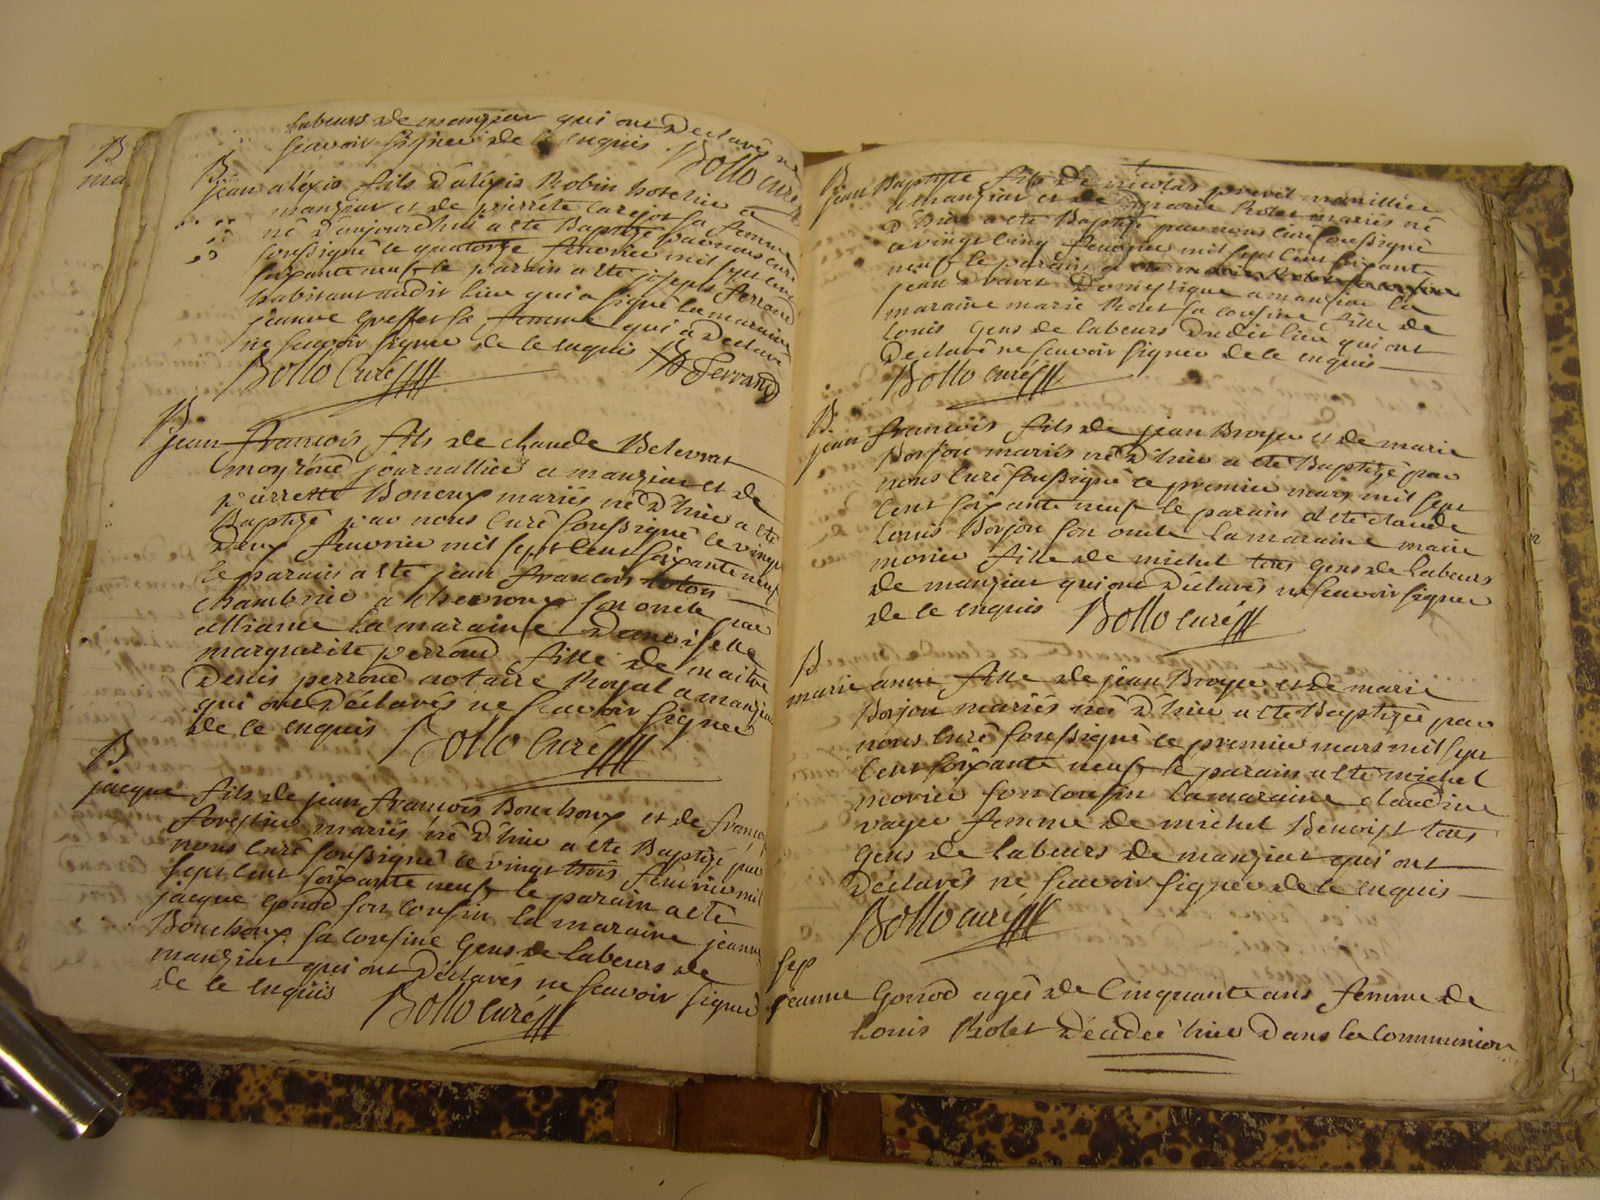 labeurs de manziat qui ont declarés ne
scavoir signer de ce enquis Bollo curé
B
jean aléxis fils d'aléxis Robin hotelier a
manziat et de pierrete Carejot sa femme
né d'aujourd'hui a ete Baptizé par nous curé
soussigné le quatorze fevrier mil sept cent
soixante neuf le parain a ete joseph ferrand
habitant audit lieu qui a signé la maraine
jeanne greffet sa femme qui a declaré
ne scavoir signer de ce enquis
Bollo Curé Ferrand
B
jean francois fils de claude Belevrat
moyröné journallier a manziat et de
pierrette Boncrux mariés né d'hier a ete
Baptizé par nous Curé soussigné le vingt
deux fevrier mil sept cent soixante neuf
le parain a ete jean francois
chambrier a chevroux son oncle par
alliance la maraine demoiselle
marguerite perroud fille de maitre
Denis perroud notaire Royal a manziat
qui ont declarés ne scavoir signer
de ce enquis Bollo Curé
B
jacque fils de jean francois Bouchoux et de franco
forestier mariés né d'hier a ete Baptizé par
nous Curé soussigné le vingt trois fevrier mil
sept cent soixante neuf le parain a ete
jacque gonod son cousin la maraine jeanne
Bouchoux sa cousine gens de labeurs de
manziat qui ont déclarés ne scavoir signer
de ce enquis Bollo Curé
B
jean Baptiste fils de nicolas previt
a manziat et de marie Rolet mariés né
d'hier a ete Baptizé par nous Curé soussigné
a vingt cinq fevrier mil sept cent soixante
neuf le parain a ete
jean domestique a manziat la
maraine marie Rolet sa cousine fille de
louis gens de labeurs dudit lieu qui ont
declaré ne scavoir signer de ce enquis
Bollo curé
B
jean francois fils de jean Broyer et de marie
Borjon mariés né d'hier a ete Baptizé par
nous Curé soussigné ce premier mars mil sept
cent soixante neuf le parain a ete claude
louis Borjon son oncle la maraine marie
morier fille de michel tous gens de labeurs
de manziat qui ont déclarés ne scavoir signer
de ce enquis Bollo curé
B
marie anne fille de jean Broyer et de marie
Borjon mariés née d'hier a ete Baptizée par
nous Curé soussigné ce premier mars mil sept
cent soixante neuf le parain a ete michel
morier son cousin la maraine claudine
vayer femme de michel Benoist tous
gens de labeurs de manziat qui ont
déclarés ne scavoir signer de ce enquis
Bollo curé
sep
jeanne Gonod agés de Cinquante ans femme de
louis Rolet décedée hier dans la Communion